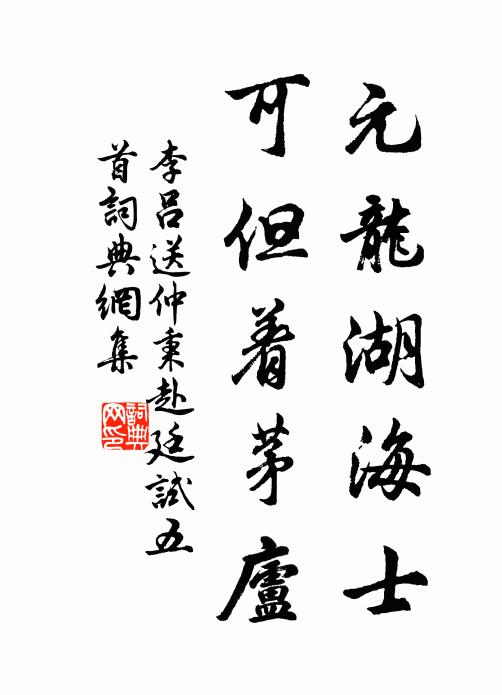 元龍湖海士
可但着茅廬
李呂送仲秉赴廷試五
首詞典網集
詞典
网印